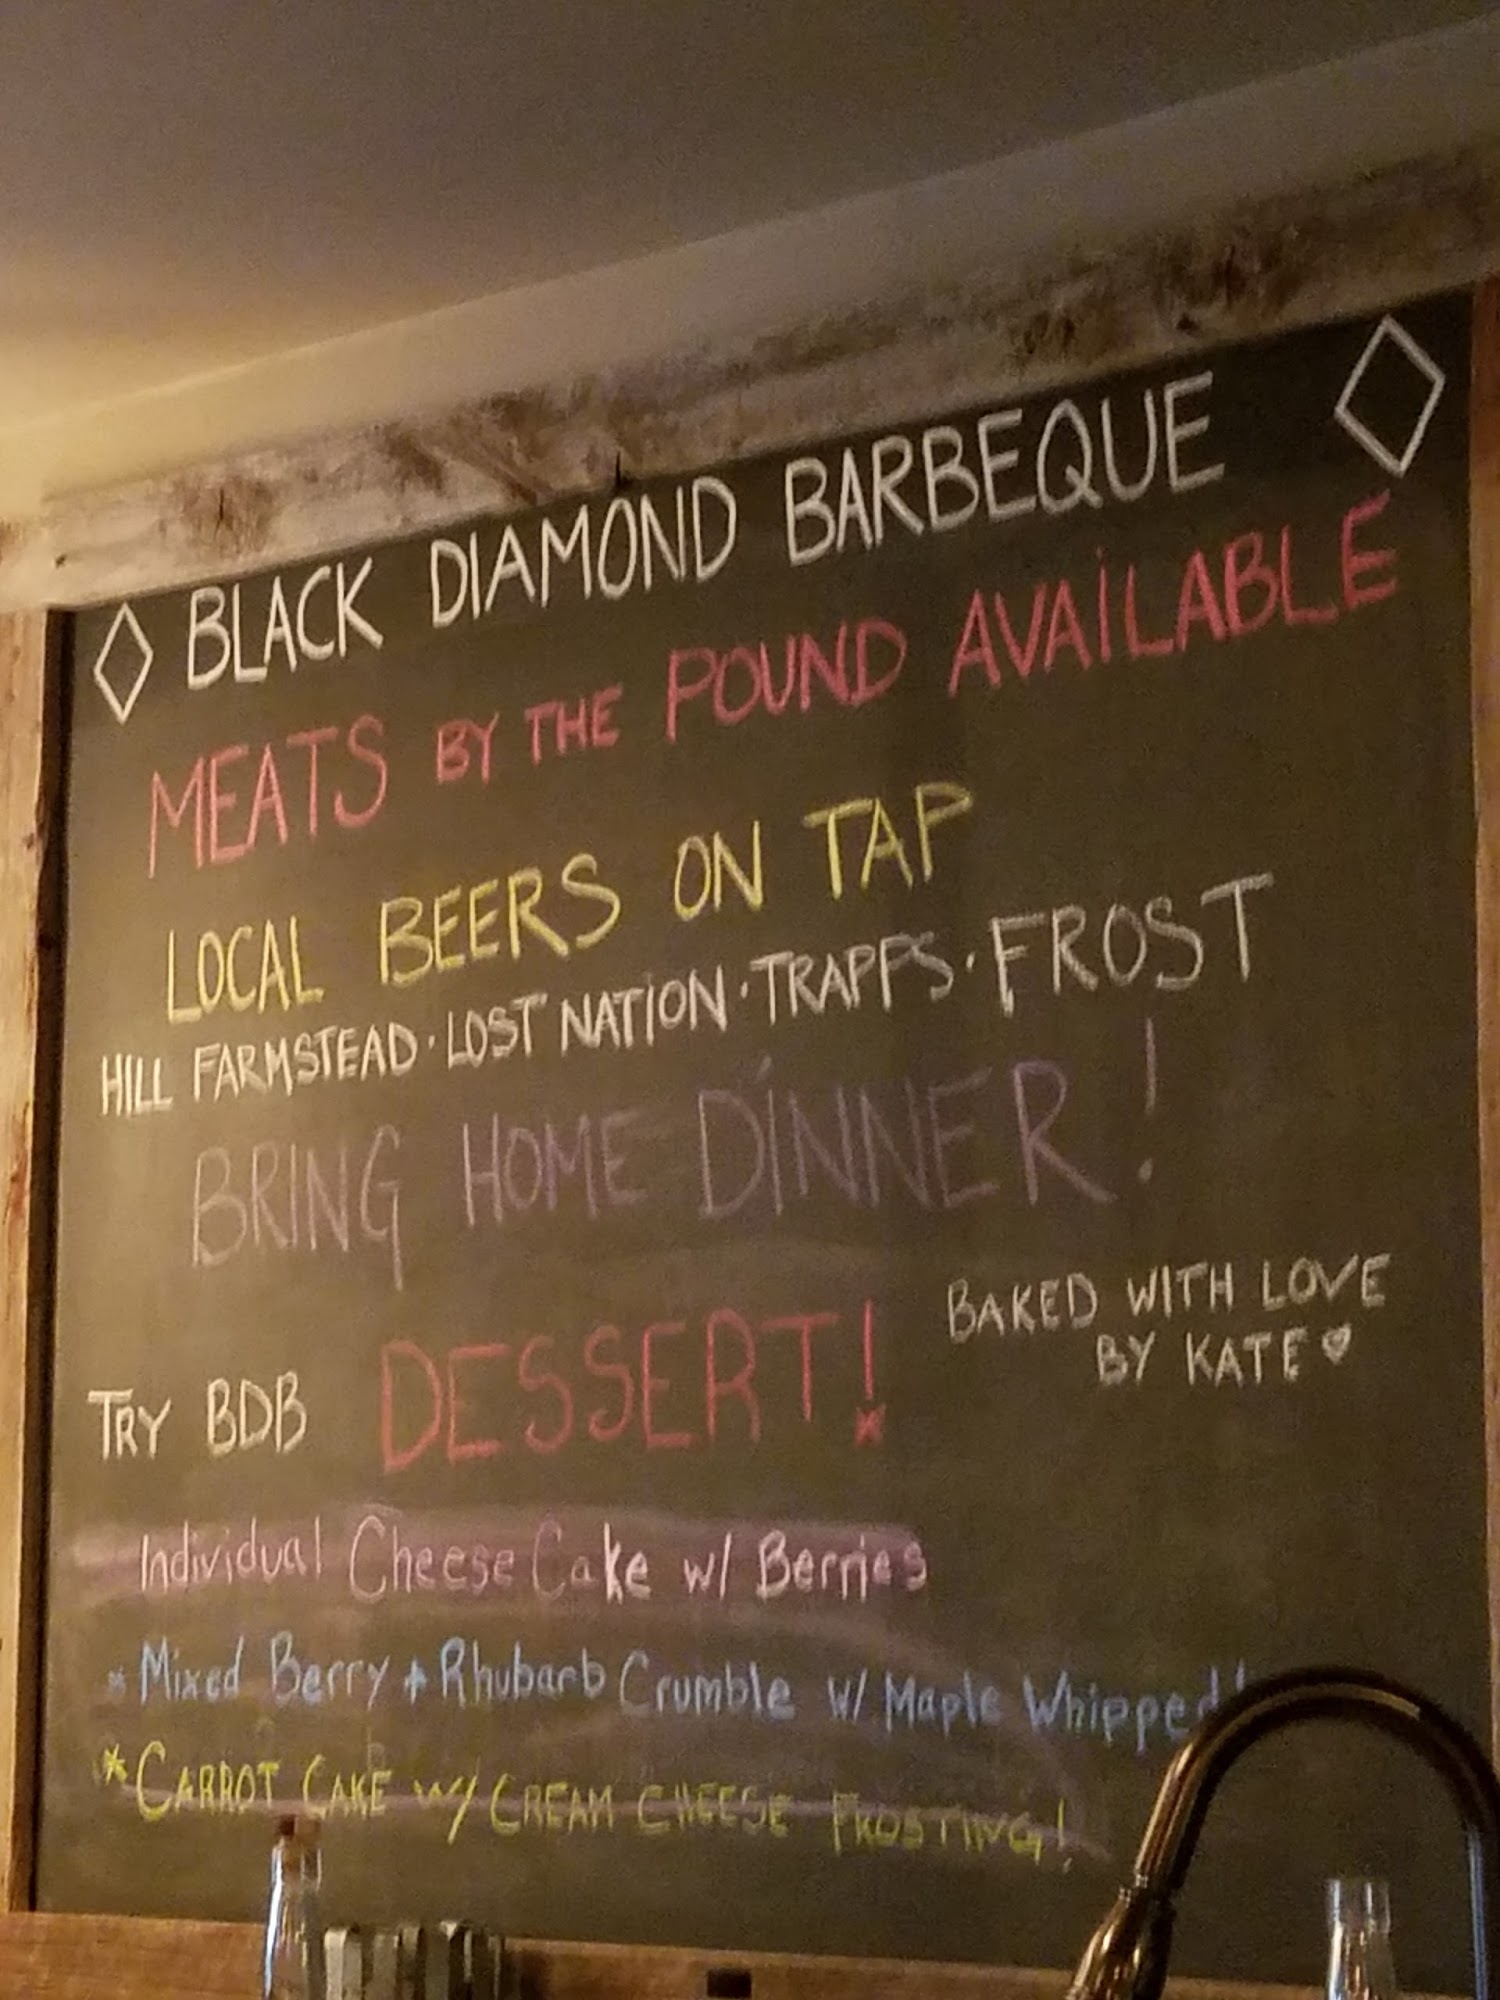 BLACK DIAMOND BARBEQUE
MEATS BY THE POUND AVAILABLE
LOCAL BEERS ON TAP
HILL FARMSTEAD · LOST NATION · TRAPPS · FROST
BRING HOME DINNER!
BAKED WITH LOVE
BY KATE ♥
TRY BDB DESSERT!
Individual Cheese Cake w/ Berries
* Mixed Berry + Rhubarb Crumble w/ Maple Whipped
* CARROT CAKE w/ CREAM CHEESE FROSTING!